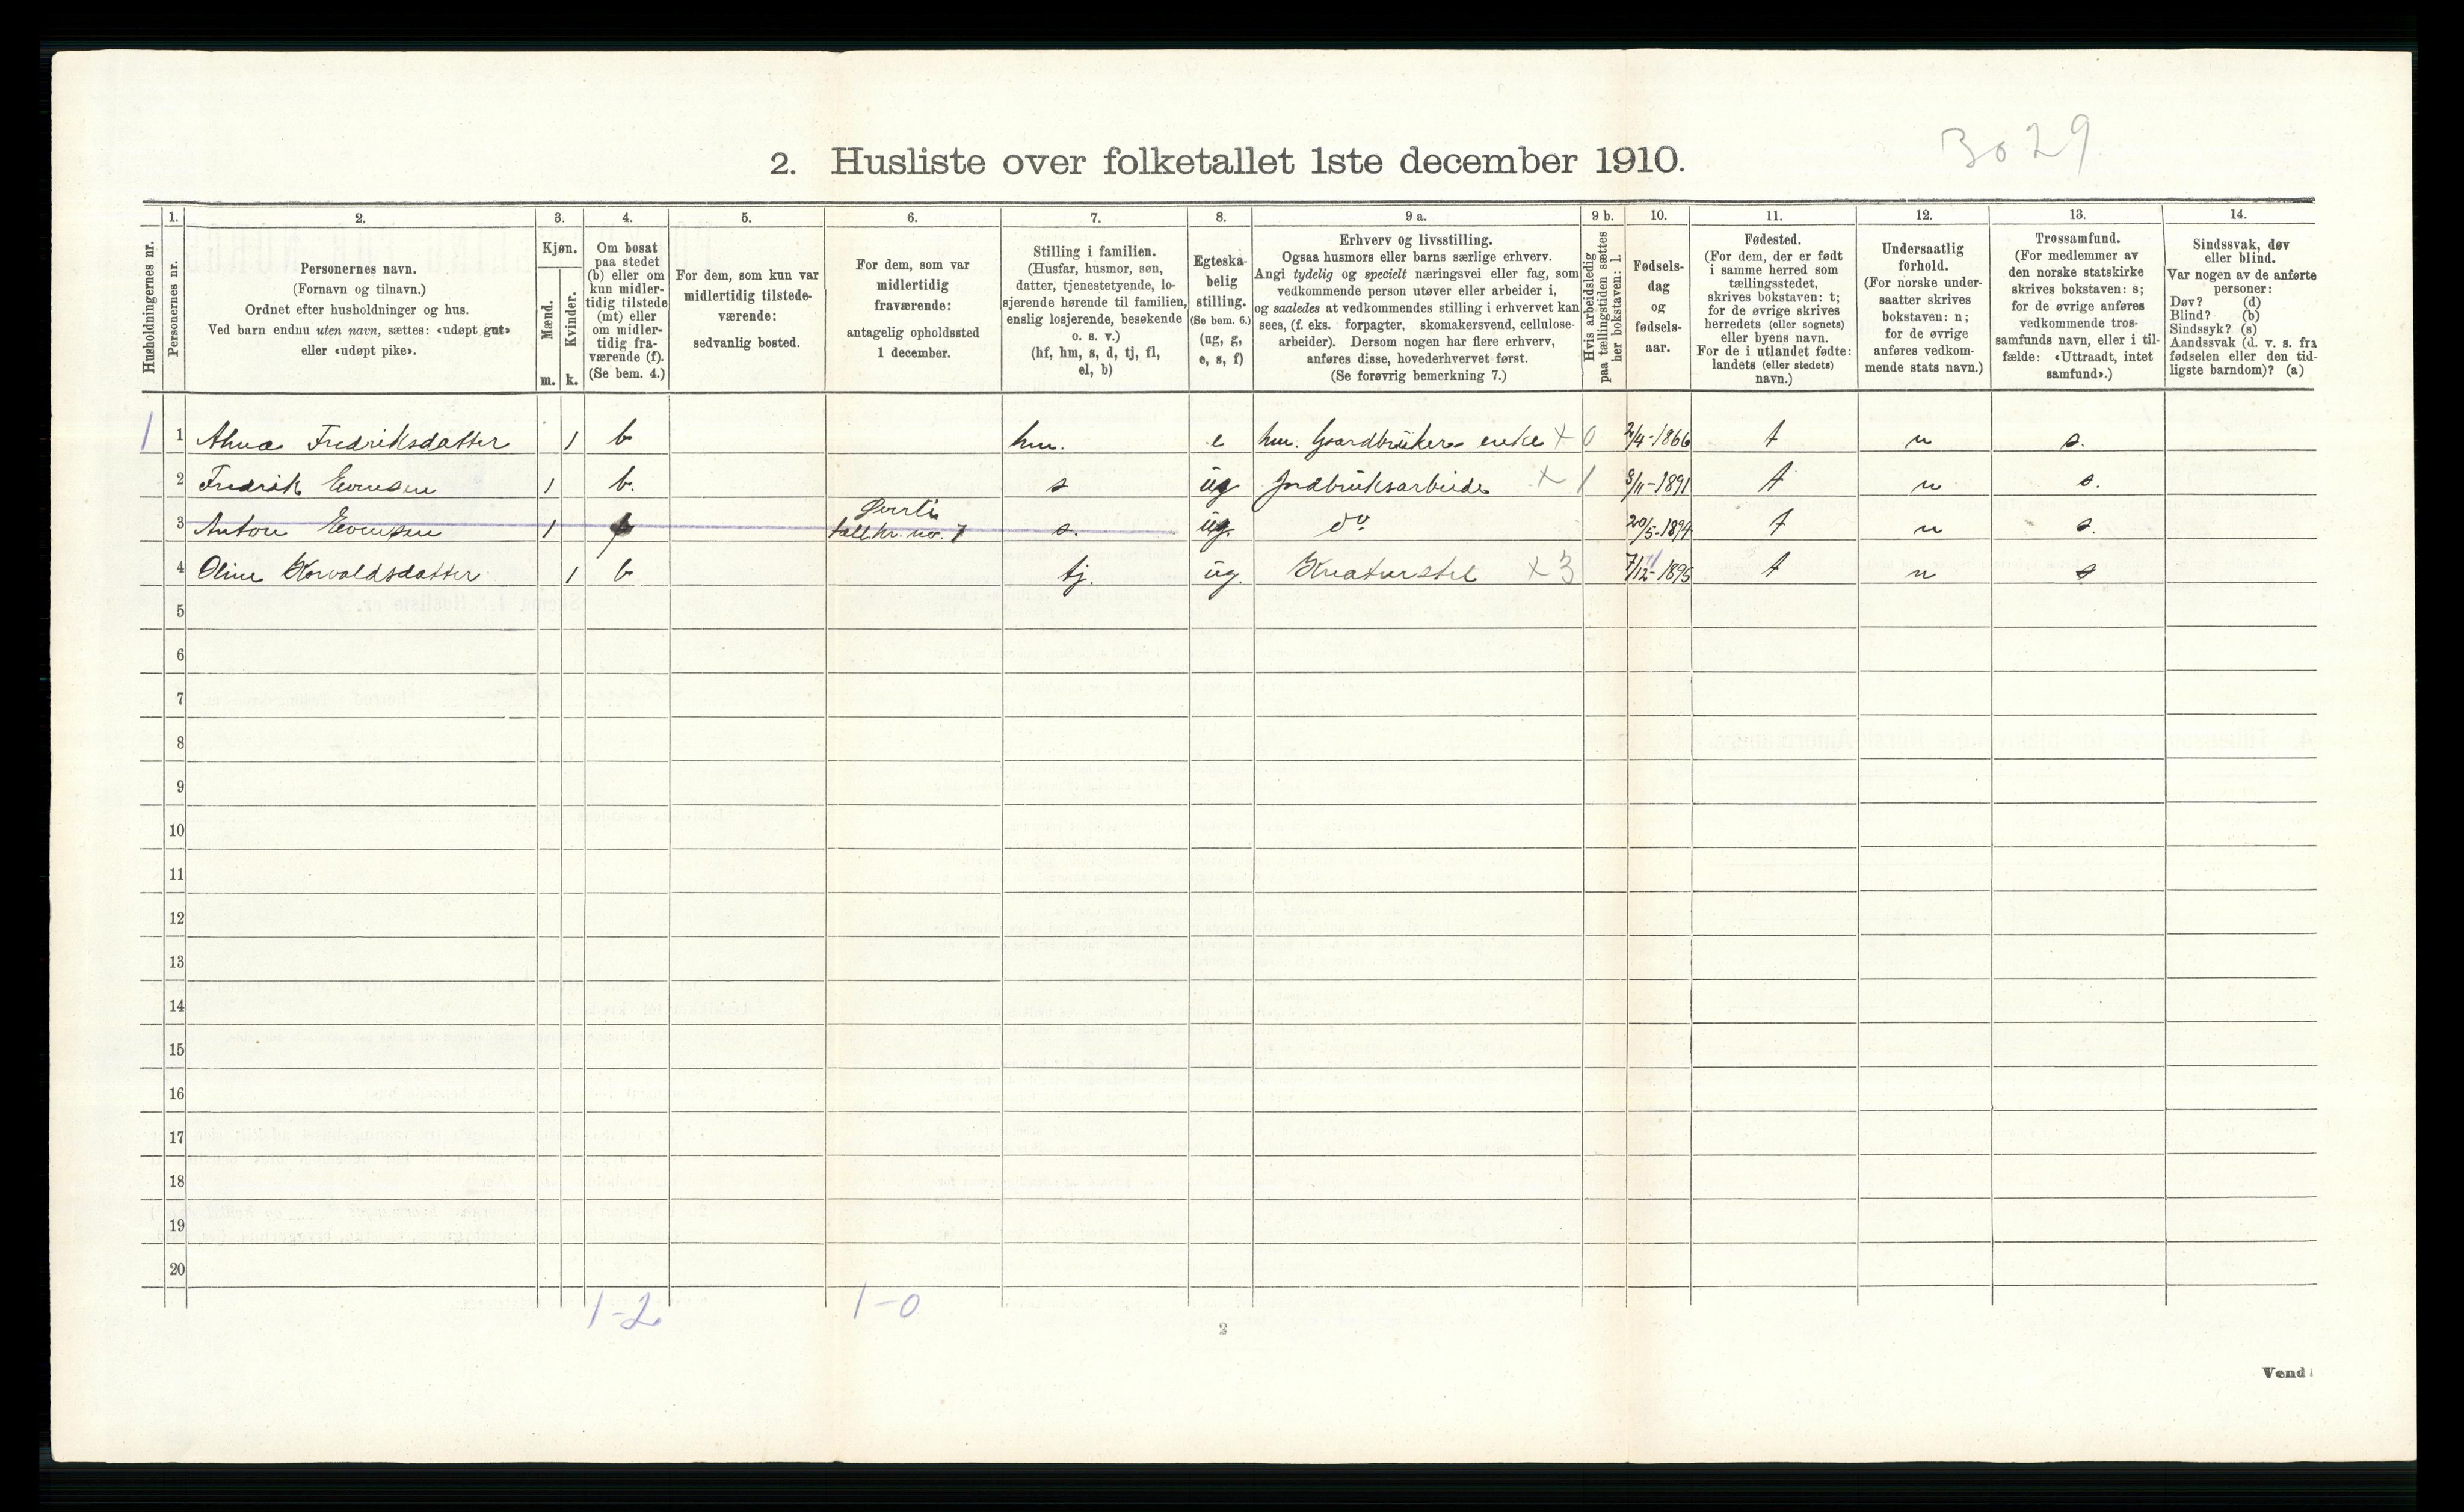 3029
2. Husliste over folketallet 1ste december 1910.
Husholdningernes nr.
1.
Personernes nr.
2.
Personernes navn.
(Fornavn og tilnavn.)
Ordnet efter husholdninger og hus.
Ved barn endnu uten navn, sættes: «udøpt gut»
eller «udøpt pike».
3.
Kjøn.
Mænd.
Kvinder.
m. k.
4.
Om bosat
paa stedet
(b) eller om
kun midler-
tidig tilstede
(mt) eller
om midler-
tidig fra-
værende (f).
(Se bem. 4.)
5.
For dem, som kun var
midlertidig tilstede-
værende:
sedvanlig bosted.
6.
For dem, som var
midlertidig
fraværende:
antagelig opholdssted
1 december.
7.
Stilling i familien.
(Husfar, husmor, søn,
datter, tjenestetyende, lo-
sjerende hørende til familien,
enslig losjerende, besøkende
o. s. v.)
(hf, hm, s, d, tj, fl,
el, b)
8.
Egteska-
belig
stilling.
(Se bem. 6.)
(ug, g,
e, s, f)
9 a.
Erhverv og livsstilling.
Ogsaa husmors eller barns særlige erhverv.
Angi tydelig og specielt næringsvei eller fag, som
vedkommende person utøver eller arbeider i,
og saaledes at vedkommendes stilling i erhvervet kan
sees, (f. eks. forpagter, skomakersvend, cellulose-
arbeider). Dersom nogen har flere erhverv,
anføres disse, hovederhvervet først.
(Se forøvrig bemerkning 7.)
9 b.
Hvis arbeidsledig
paa tællingstiden sættes
her bokstaven: l.
10.
Fødsels-
dag
og
fødsels-
aar.
11.
Fødested.
(For dem, der er født
i samme herred som
tællingsstedet,
skrives bokstaven: t;
for de øvrige skrives
herredets (eller sognets)
eller byens navn.
For de i utlandet fødte:
landets (eller stedets)
navn.)
12.
Undersaatlig
forhold.
(For norske under-
saatter skrives
bokstaven: n;
for de øvrige
anføres vedkom-
mende stats navn.)
13.
Trossamfund.
(For medlemmer av
den norske statskirke
skrives bokstaven: s;
for de øvrige anføres
vedkommende tros-
samfunds navn, eller i til-
fælde: «Uttraadt, intet
samfund».)
14.
Sindssvak, døv
eller blind.
Var nogen av de anførte
personer:
Døv? (d)
Blind? (b)
Sindssyk? (s)
Aandssvak (d. v. s. fra
fødselen eller den tid-
ligste barndom)? (a)
1 1 Fredriksdatter 1 b hm. e hm. Gaardbrukers enke × 0 /4-1866 t n s.
2 Fredrik Evensen 1 b. s ug Jordbruksarbeide × 1 /11-1891 t n s.
3 Anton Evensen 1 tællkr. no. 7 s. ug. do 20/5-1894 t n s.
4 Oline Torvaldsdatter 1 b tj. ug. Kreaturstel × 3 7/12-1895 t n s
5
6
7
8
9
10
11
12
13
14
15
16
17
18
19
20
1-2 1-0
2
Vend!